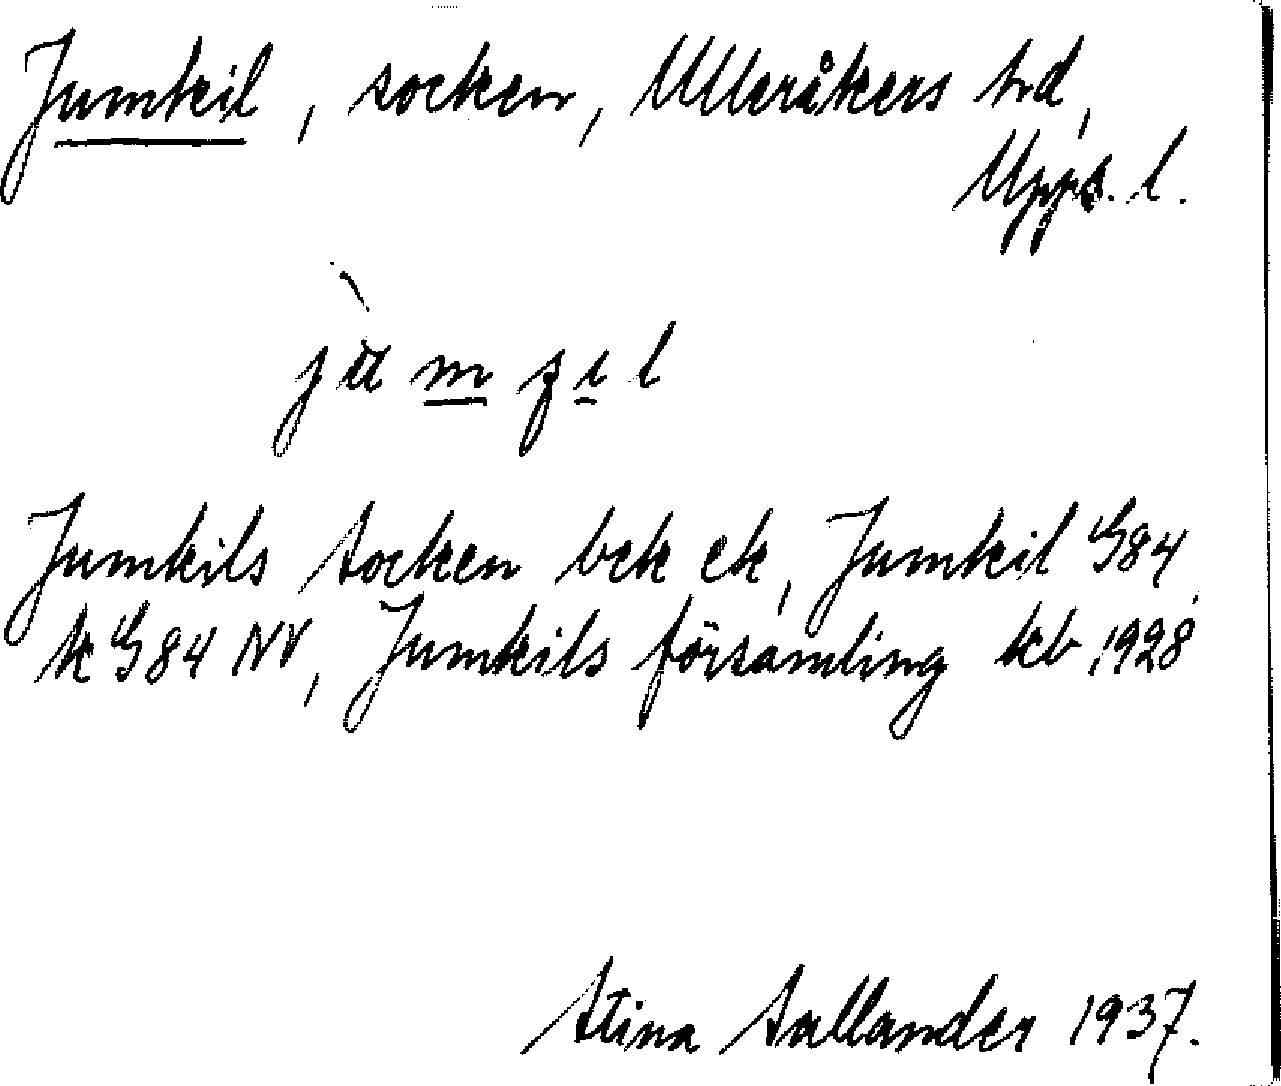 Jumkil, socken, Ulleråkers hd,
Upps. l.
Jumkils Socken bek ek, Jumkil G84
k G84 NV, Jumkils församling kb 1928
Stina Sallander 1937.